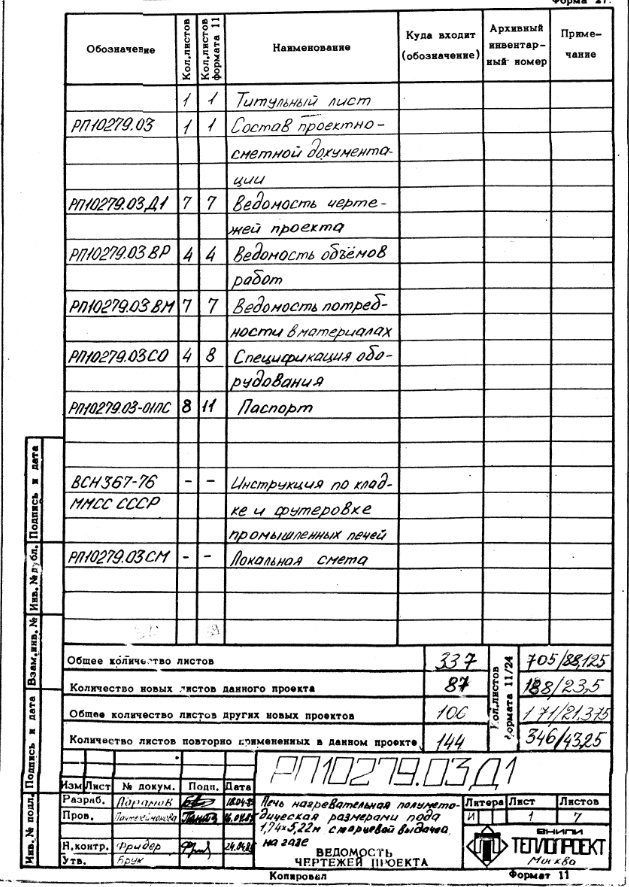 Форма 27.
Обозначение Кол.листов Кол.листов формата 11 Наименование Куда входит (обозначение) Архивный инвентарный номер Примечание
1 1 Титульный лист
РП10279.03 1 1 Состав проектно-
сметной документа-
ции
РП10279.03.Д1 7 7 Ведомость черте-
жей проекта
РП10279.03 ВР 4 4 Ведомость объёмов
работ
РП10279.03 ВМ 7 7 Ведомость потреб-
ности в материалах
РП10279.03 СО 4 8 Спецификация обо-
рудования
РП10279.03-01ПС 8 11 Паспорт
ВСН367-76 - - Инструкция по клад-
ММСС СССР ке и футеровке
промышленных печей
РП10279.03 СМ - - Локальная смета
Общее количество листов 337 705/88,125
Количество новых листов данного проекта 87 188/23,5
Общее количество листов других новых проектов 106 171/21,375
Количество листов повторно примененных в данном проекте 144 346/43,25
Кол.листов формата 11/24
РП10279.03Д1
Изм Лист № докум. Подп. Дата
Разраб.
Пров.
Н.контр. Фридер 24.04.8
Утв. Брук
Печь нагревательная полумето-
дическая размерами пода
1,74×5,22м с торцевой выдачей,
на газе
ВЕДОМОСТЬ
ЧЕРТЕЖЕЙ ПРОЕКТА
Литера Лист Листов
И 1 7
ВНИПИ
ТЕПЛОПРОЕКТ
Москва
Копировал Формат 11
Инв. № подл. Подпись и дата Взам.инв. № Инв. № дубл. Подпись и дата